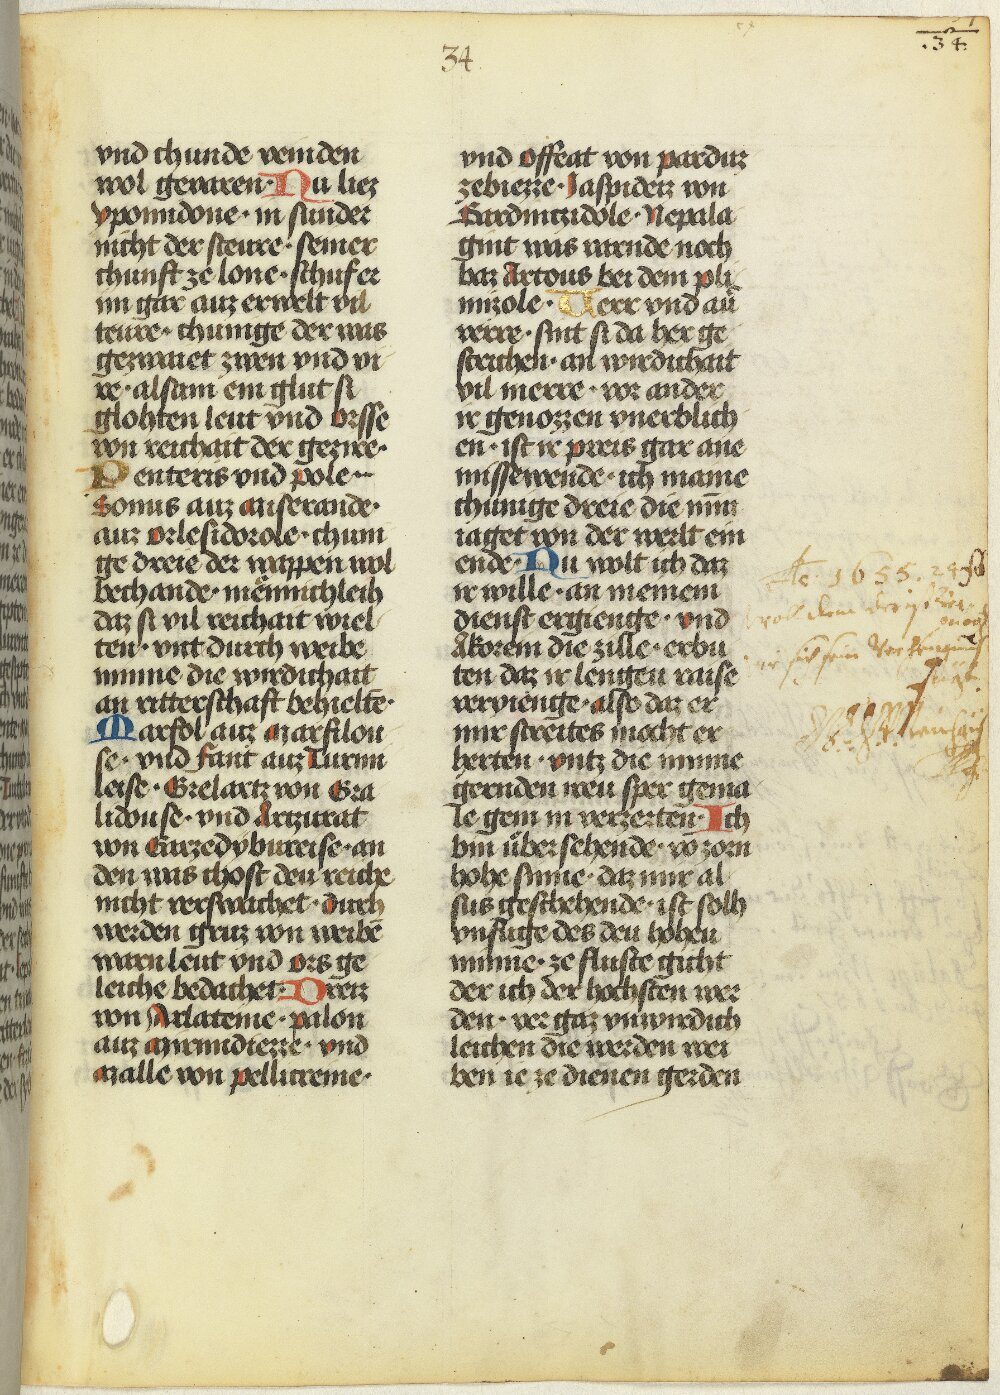 34
.34.
vnd chunde veinden
wol gevaren· Nu liez
yponudone· in sunder
nicht der steure· seiner
chunst ze lone· schuf er
im gar auz erwelt vil
teure· chunige der was
gezwaiet zwen vnd vi
re· alsam ein glut si
glohten leut vnd orsse
von reichait der gezire·
Penteris vnd pole·
Gonus auz anserande·
auz orlesidorole· chuni
ge dreie der wappen wol
bechande· mennichleih
daz si vil reichait wiel
ten· vnt durch weibe
minne die wirdichait
an ritterschaft behielte·
Marfol auz marfilou
se· vnd fanit auz Turni
leise· Grelartz von Gra
lidouse· vnd Artzurat
von Gurzedybureise· an
den was chost deu reiche
nicht verswachet· durch
werden gruz von weibe
warn leut vnd ors ge
leiche bedachet· Dreiz
von Arlateme· palon
auz mirmidierre· vnd
malle von pellicreme·
vnd offeat von parduz
zebierre· Jaspiderz von
Gardintzidole· Nepala
gint was virende noch
baz Artous bei dem pli
mizole· Verr vnd au
verre· sint si da her ge
strichen· an wirdichait
vil merre· vor ander
ir genozzen vnerblich
en· ist ir preis gar ane
missewende· ich maine
chunige dreie die min
iaget von der werlt ein
ende· Nu wolt ich daz
ir wille· an meinem
dienst ergienge· vnd
Akorein die zille· erbu
ten daz ir lengeu raise
vervienge· also daz er
mir streites mocht er
herten· vntz die minne
gernden neu sper gema
le gein in verzerten· Ich
bin übersehende· vo zorn
hohe sinne· daz mir al
sus geschehende· ist solh
vnfuge des deu hohen
minne· ze fluste gicht
der ich der hochsten wer
den· vergaz vnwirdich
leichen die werden wei
ben ie ze dienen gerden
1655.